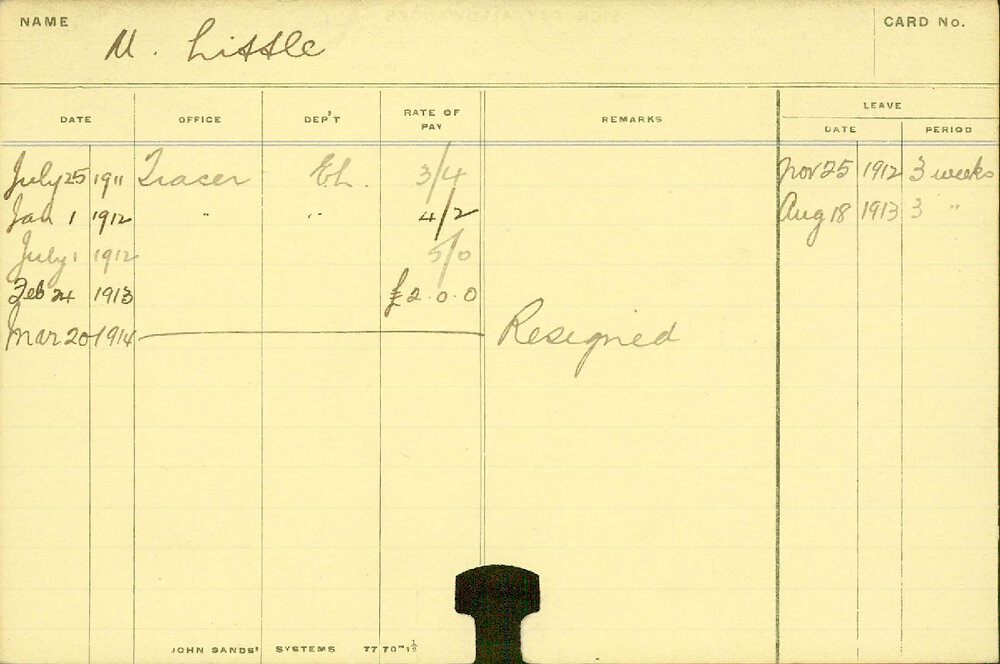 NAME M. Little CARD No.
DATE OFFICE DEP'T RATE OF PAY REMARKS LEAVE
DATE PERIOD
July 25 1911 Tracer 3/4 Nov 25 1912 3 weeks
Jan 1 1912 " " 4/2 Aug 18 1913 3 "
July 1 1912 5/0
Feb 24 1913 £2.0.0
Mar 20 1914 Resigned
JOHN SANDS' SYSTEMS